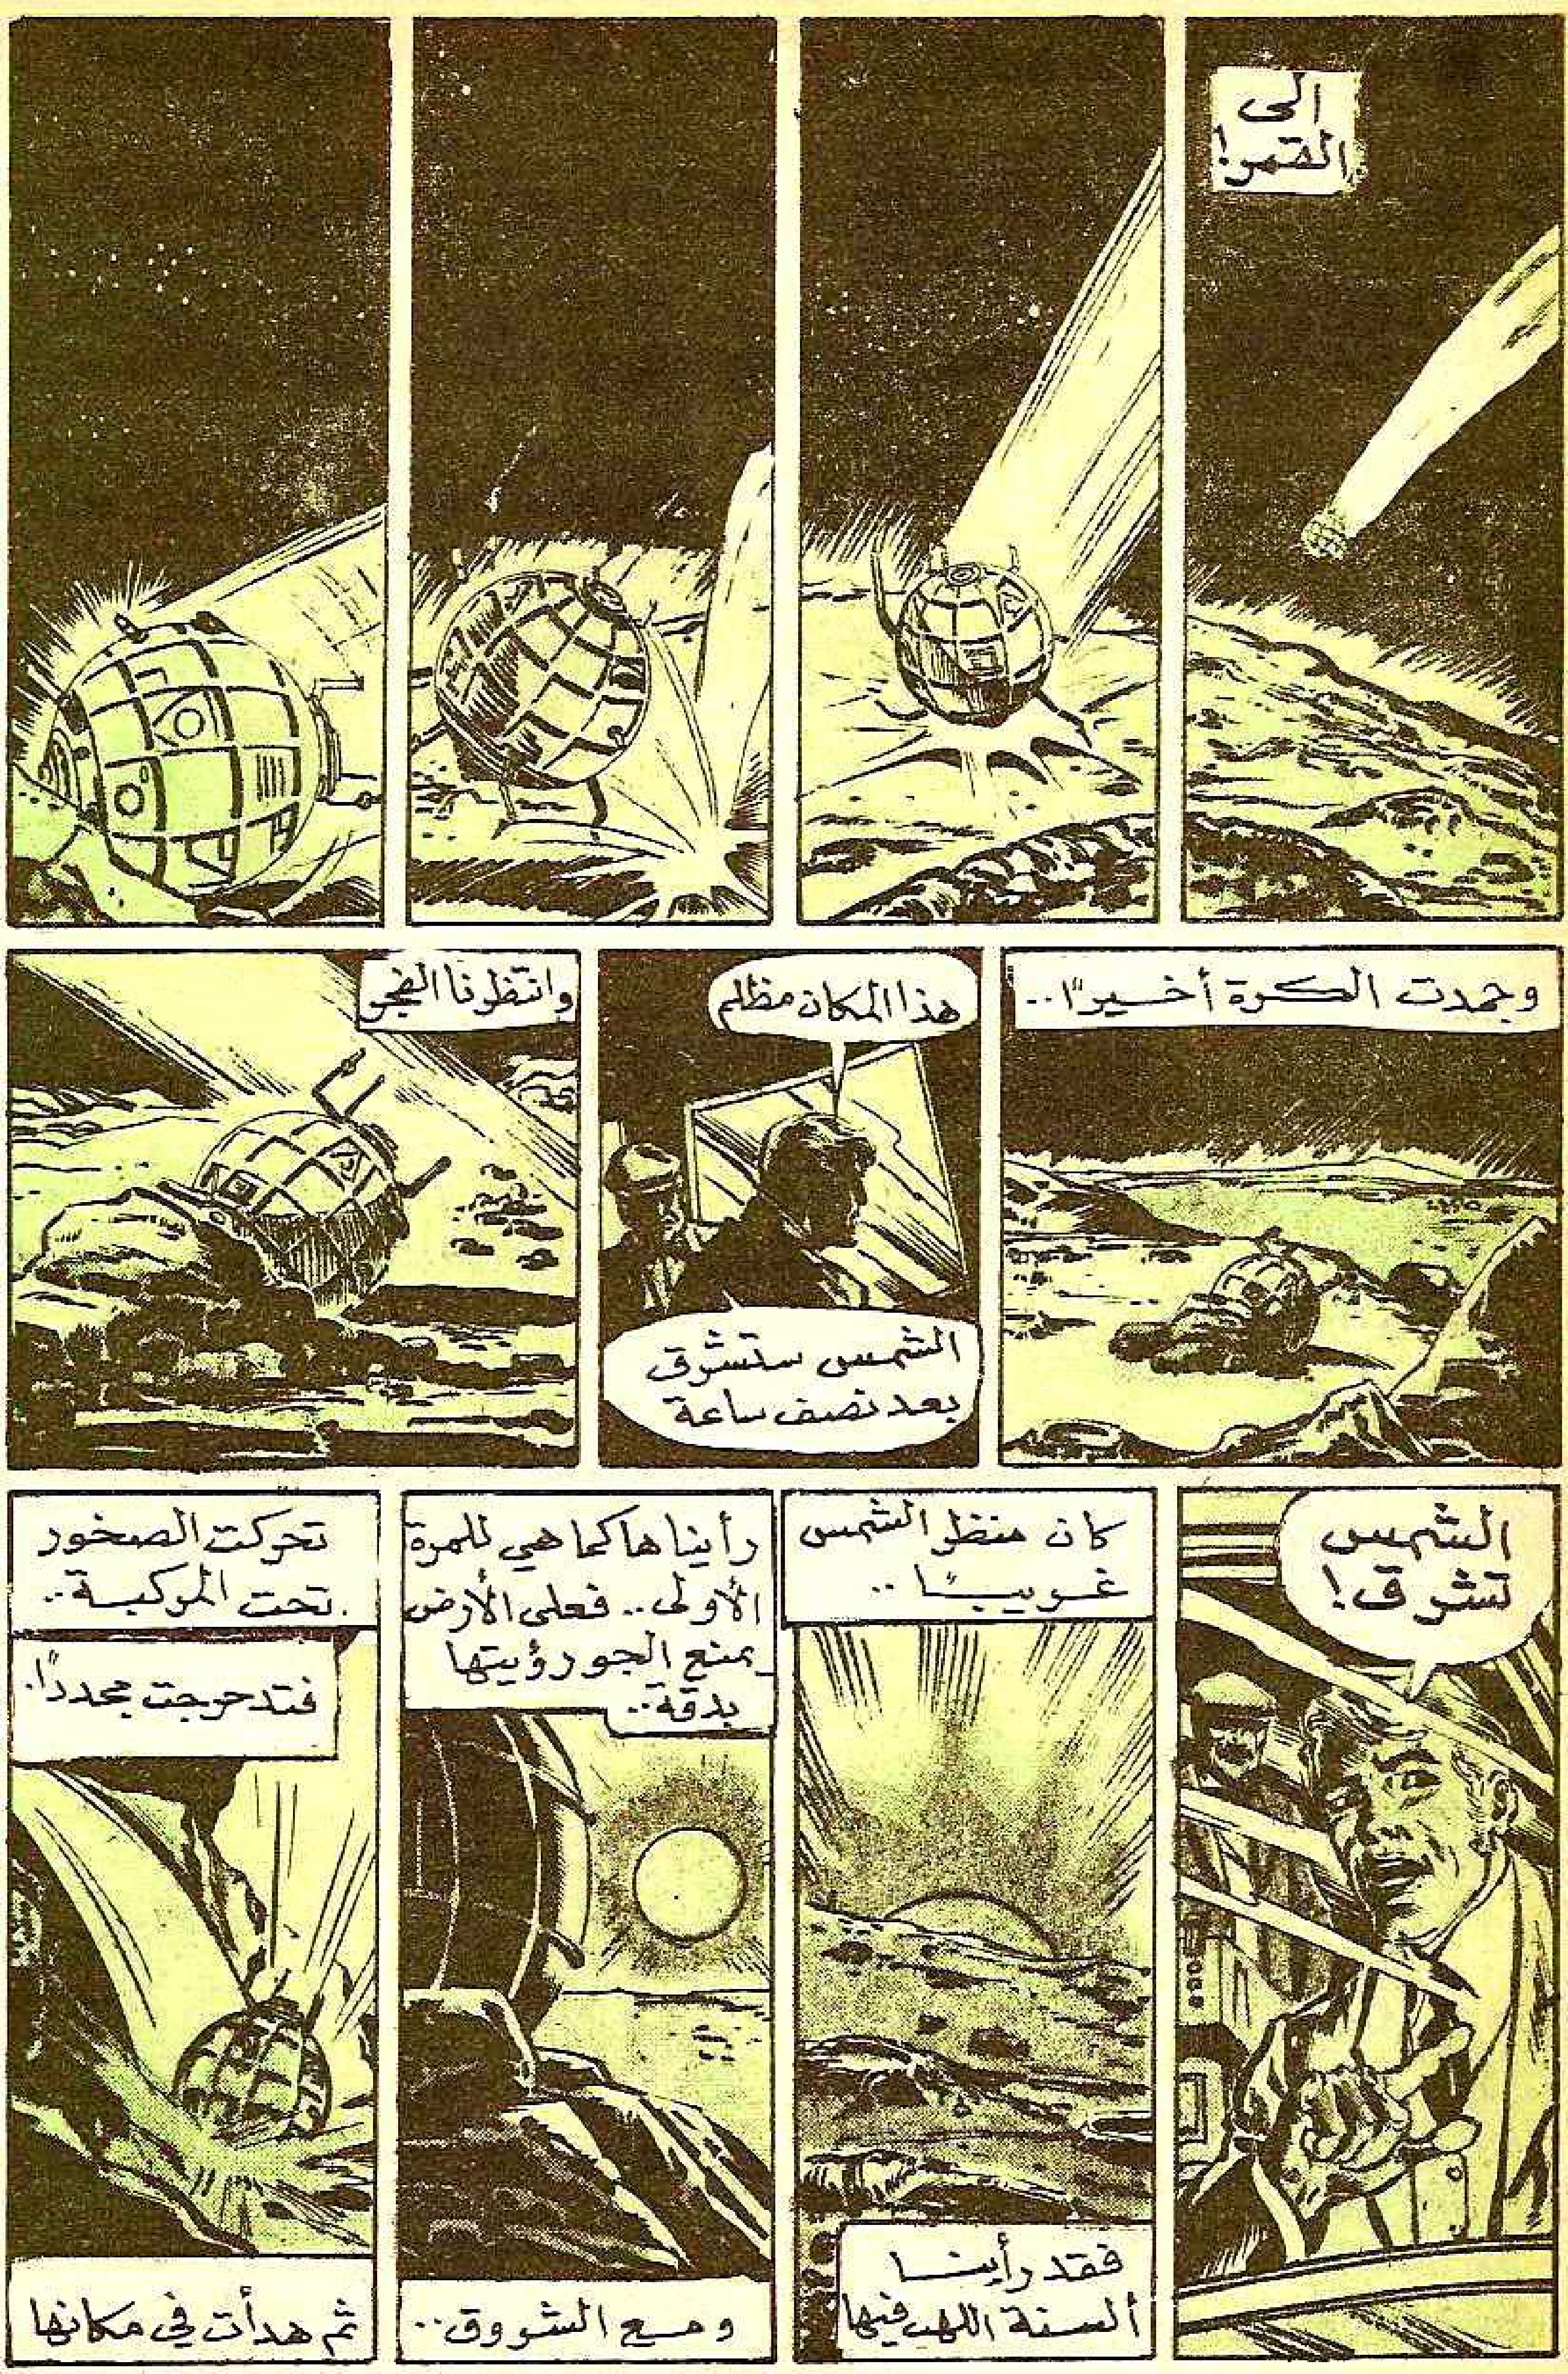 الى
القمر!
وجمدت الكرة أخيرًا..
هذا المكان مظلم
الشمس ستشرق
بعد نصف ساعة
وانتظرنا الفجر
الشمس
تشرق!
كان منظر الشمس
غريبًا ..
فقد رأينا
ألسنة اللهب فيها
رأيناها كما هي للمرة
الأولى.. فعلى الأرض
يمنع الجو رؤيتها
بدقة..
ومع الشروق..
تحركت الصخور
تحت المركبة..
فتدحرجت مجددًا.
ثم هدأت في مكانها